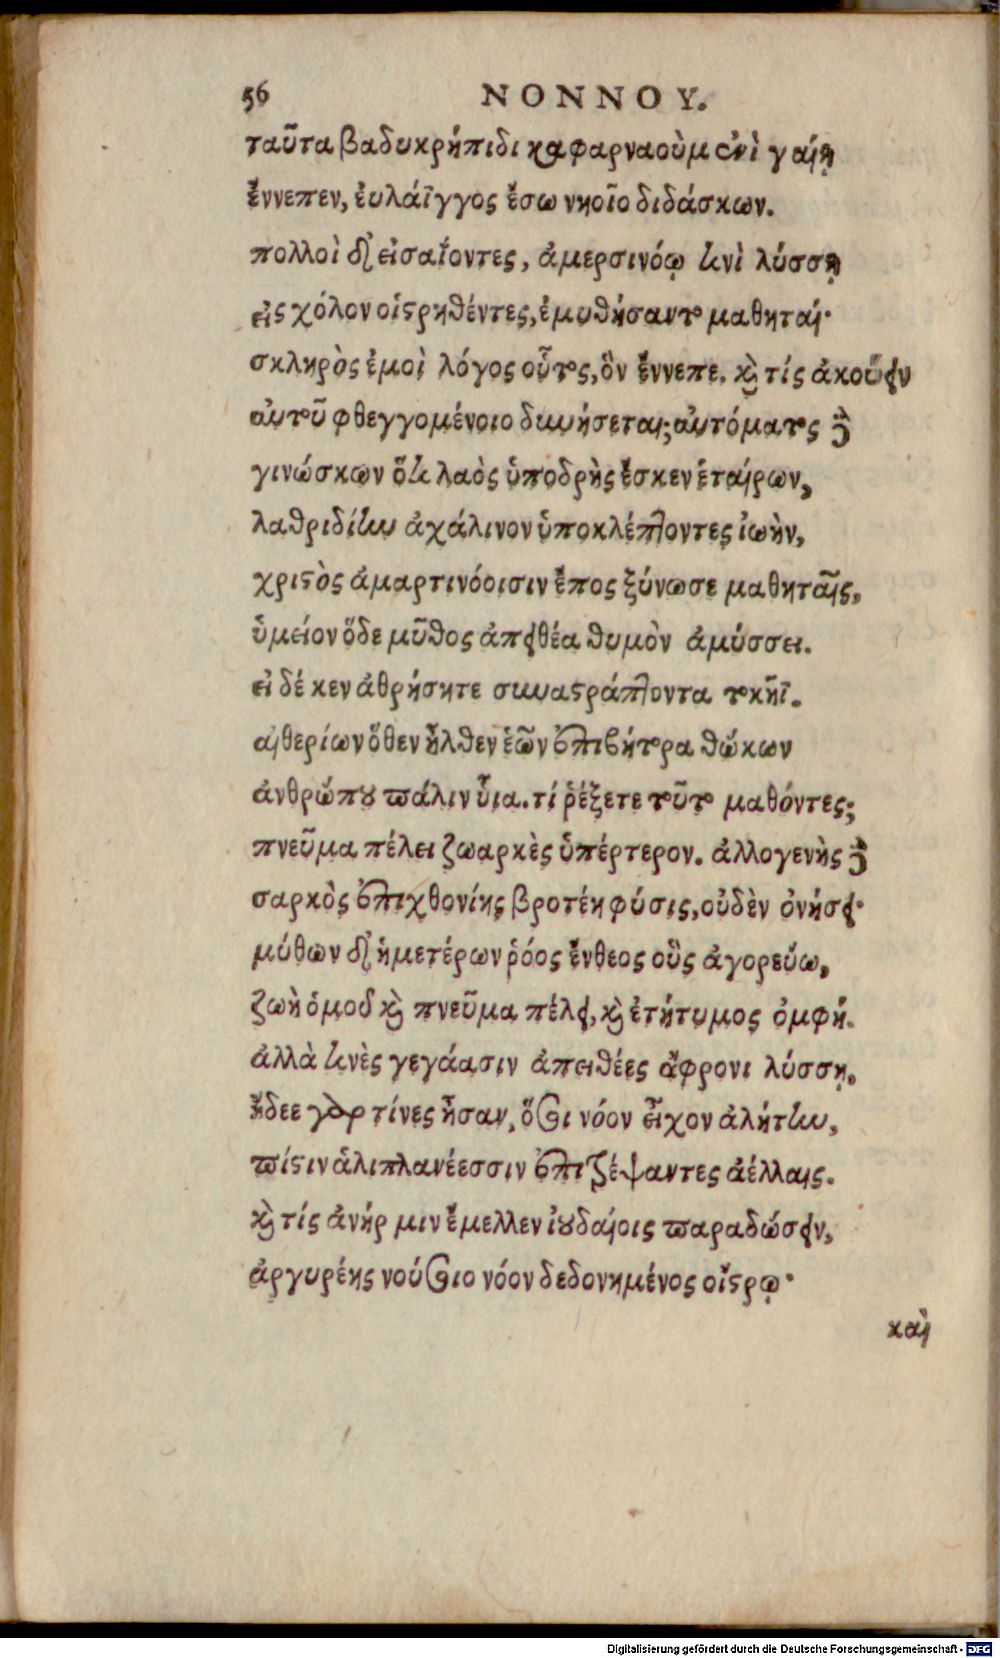 56 ΝΟΝΝΟΥ.
ταῦτα βαδυκρήπιδι καφαρναοὺμ ἐνὶ γαίῃ
ἔννεπεν, ἐυλάϊγγος ἔσω νηοῖο διδάσκων.
πολλοὶ δ' εἰσαΐοντες, ἀμερσινόῳ τινὶ λύσσῃ
εἰς χόλον οἰστρηθέντες, ἐμυθήσαντο μαθηταί·
σκληρὸς ἐμοὶ λόγος οὗτος, ὃν ἔννεπε. καὶ τίς ἀκούειν
αὐτοῦ φθεγγομένοιο δυνήσεται; αὐτόματος δὲ
γινώσκων ὅτι λαὸς ὑποδρὴς ἔσκεν ἑταίρων,
λαθριδίην ἀχάλινον ὑποκλέπτοντες ἰωὴν,
χριστὸς ἁμαρτινόοισιν ἔπος ξύνωσε μαθηταῖς,
ὑμείον ὅδε μῦθος ἀπειθέα θυμὸν ἀμύσσει.
εἰ δέ κεν ἀθρήσητε συναστράπτοντα τοκῆϊ.
αἰθερίων ὅθεν ἦλθεν ἑῶν ἐπιβήτορα θώκων
ἀνθρώπου πάλιν ὗια. τί ῥέξετε τοῦτο μαθόντες;
πνεῦμα πέλει ζωαρκὲς ὑπέρτερον. ἀλλογενὴς δὲ
σαρκὸς ἐπιχθονίης βροτέη φύσις, οὐδὲν ὀνήσει·
μύθων δ' ἡμετέρων ῥόος ἔνθεος οὓς ἀγορεύω,
ζωὴ ὁμοῦ καὶ πνεῦμα πέλει, καὶ ἐτήτυμος ὀμφή.
ἀλλὰ τινὲς γεγάασιν ἀπειθέες ἄφρονι λύσσῃ.
ᾔδεε γὰρ τίνες ἦσαν, ὅσοι νόον εἶχον ἀλήτην,
πίστιν ἁλιπλανέεσσιν ἐπιτρέψαντες ἀέλλαις.
καὶ τίς ἀνήρ μιν ἔμελλεν ἰουδαίοις παραδώσειν,
ἀργυρέης νούσοιο νόον δεδονημένος οἴστρῳ·
καὶ
Digitalisierung gefördert durch die Deutsche Forschungsgemeinschaft - DFG